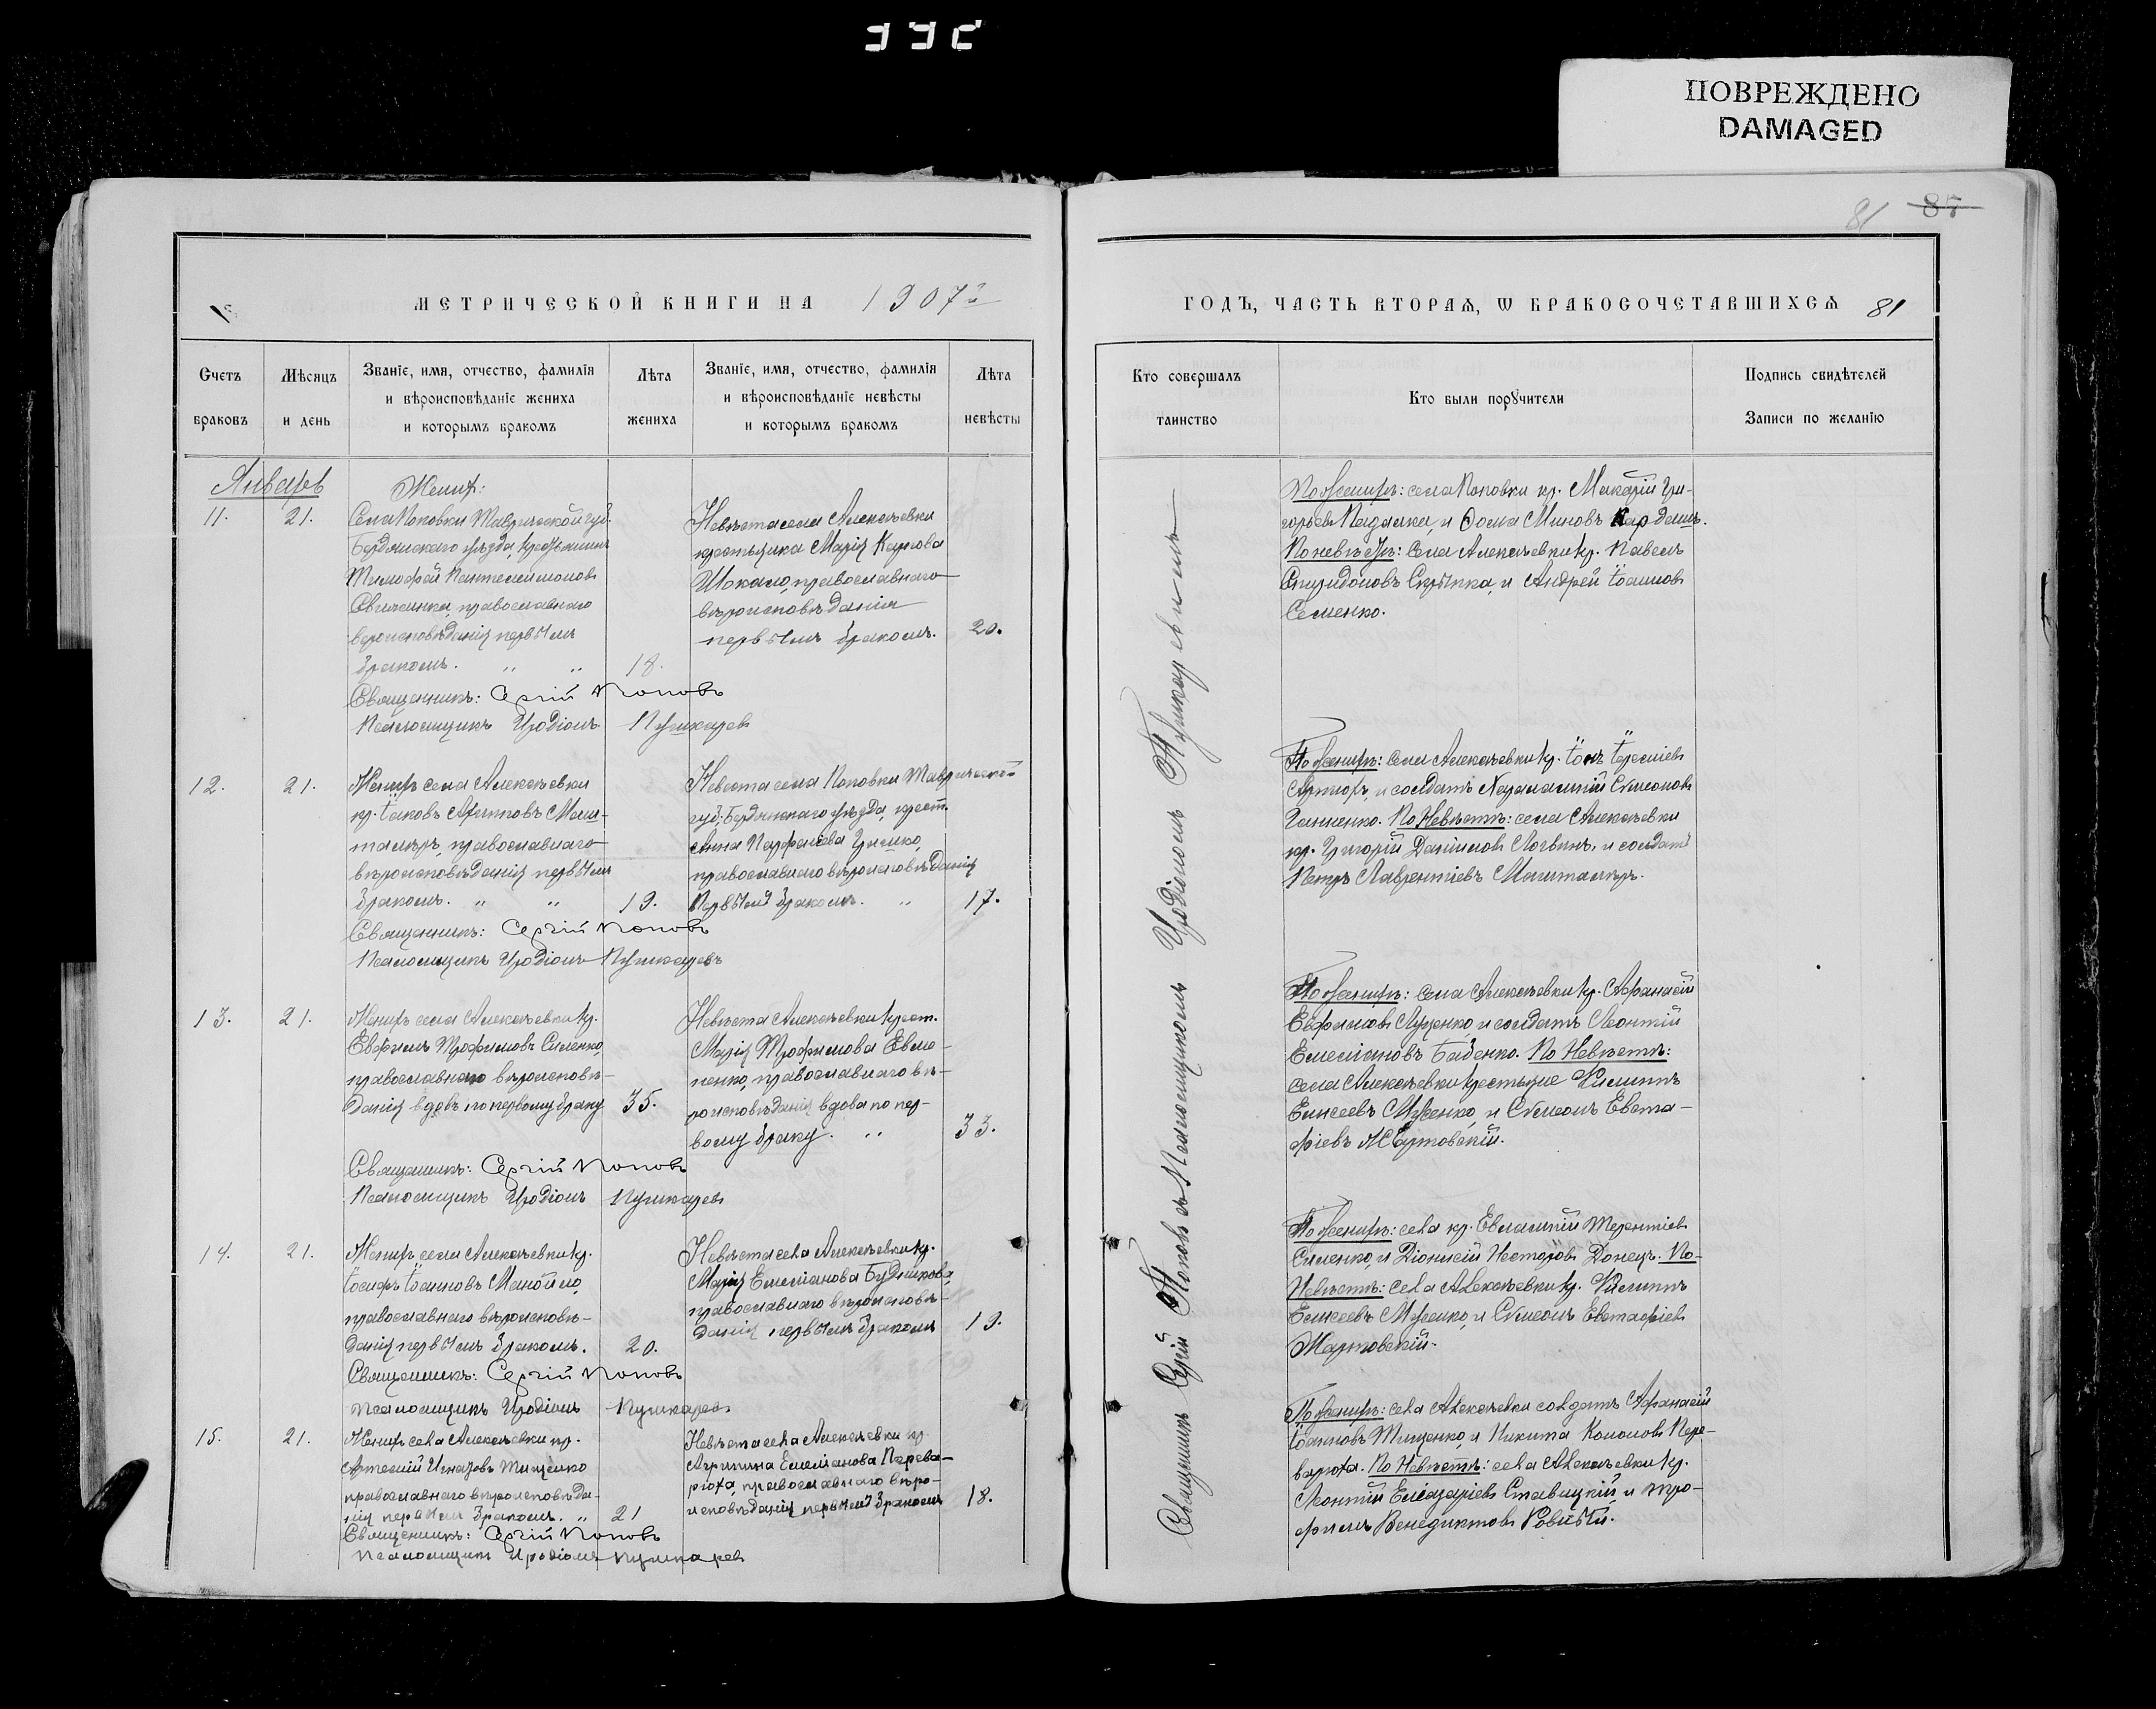 ПОВРЕЖДЕНО
DAMAGED
81 87
МЕТРИЧЕСКОЙ КНИГИ НА 1907й
Счетъ браковъ
Мѣсяцъ и день
Званіе, имя, отчество, фамилія
и вѣроисповѣданіе жениха
и которымъ бракомъ
Лѣта жениха
Званіе, имя, отчество, фамилія
и вѣроисповѣданіе невѣсты
и которымъ бракомъ
Лѣта невѣсты
Январь
11. 21.
Женихъ:
Села Поповки Таврической губ.
Бердянскаго уѣзда, крестьянинъ
Тимофей Пантелеимоновъ
православнаго
вѣроисповѣданія первымъ
бракомъ. „ „ 18.
Невѣста села Алексѣевки
крестьянка Марія Карпова
Шокало, православнаго
вѣроисповѣданія
первымъ бракомъ. 20.
Священникъ: Сергій Поповъ
Псаломщикъ Иродіонъ Пушкаревъ
12. 21.
Женихъ села Алексѣевки
кр. Іаковъ Архиповъ Маш-
талѣръ, православнаго
вѣроисповѣданія первымъ
бракомъ. „ „ 19.
Невѣста села Поповки Таврической
губ. Бердянскаго уѣзда, крест.
Анна Парфеніева Гришко,
православнаго вѣроисповѣданія
первымъ бракомъ. „ 17.
Священникъ: Сергій Поповъ
Псаломщикъ Иродіонъ Пушкаревъ
13. 21.
Женихъ села Алексѣевки кр.
Евфимъ Трофимовъ Силенко,
православнаго вѣроисповѣ-
данія вдовъ по первому браку 35.
Невѣста Алексѣевки крест.
Марія Трофимова Евме-
ненко, православнаго вѣ-
роисповѣданія вдова по пер-
вому браку. „ 33.
Священникъ: Сергій Поповъ
Псаломщикъ Иродіонъ Пушкаревъ
14. 21.
Женихъ села Алексѣевки кр.
Іосифъ Іоанновъ Манойло,
православнаго вѣроисповѣ-
данія первымъ бракомъ. 20.
Невѣста села Алексѣевки кр.
Марія Емеліанова Будникова,
православнаго вѣроисповѣ-
данія первымъ бракомъ 19.
Священникъ: Сергій Поповъ
Псаломщикъ Иродіонъ Пушкаревъ
15. 21.
Женихъ села Алексѣевки кр.
Артемій Игнатовъ Тищенко
православнаго вѣроисповѣда-
нія первымъ бракомъ. „ 21
Невѣста села Алексѣевки кр.
Агрипина Емеліанова Перева-
рюха, православнаго вѣро-
исповѣданія первымъ бракомъ 18.
Священникъ: Сергій Поповъ
Псаломщикъ Иродіонъ Пушкаревъ
ГОДЪ, ЧАСТЬ ВТОРАѦ, Ѡ БРАКОСОЧЕТАВШИХСѦ 81
Кто совершалъ таинство
Кто были порꙋчители
Подпись свидѣтелей
Записи по желанію
Священникъ Сергій Поповъ съ Псаломщикомъ Иродіономъ Пушкаревымъ
По Женихѣ: села Поповки кр. Макарій Гри-
горьевъ Падалка, и Ѳома Миновъ Кардашъ.
По невѣстѣ: села Алексѣевки кр. Павелъ
Спиридоновъ Скрыпка, и Андрей Іоанновъ
Семенко.
По Женихѣ: села Алексѣевки кр.
и солдатъ Харалампій Сѵмеоновъ
Ганненко. По Невѣстѣ: села Алексѣевки
кр. Григорій Даниловъ Логвинъ, и солдатъ
Петръ Лаврентіевъ Машталѣръ.
По Женихѣ: села Алексѣевки кр. Афанасій
Евфимовъ Луценко, и солдатъ Леонтій
Емеліановъ Бабенко. По Невѣстѣ:
села Алексѣевки крестьяне Филиппъ
Елисеевъ и Сѵмеонъ Евста-
фіевъ Жартовскій.
По Женихѣ: села кр. Евлампій Терентіевъ
Силенко, и Діонисій Несторовъ Донецъ. По-
Невѣстѣ: села Алексѣевки кр. Филиппъ
Елисеевъ и Сѵмеонъ Евстафіевъ
Жартовскій.
По Женихѣ: села Алексѣевки солдатъ Афанасій
Іоанновъ Тищенко, и Никита Кононовъ Пере-
варюха. По Невѣстѣ: села Алексѣевки кр.
Леонтій Елеазаріевъ Ставицкій, и Тро-
фимъ Венедиктовъ Ровный.